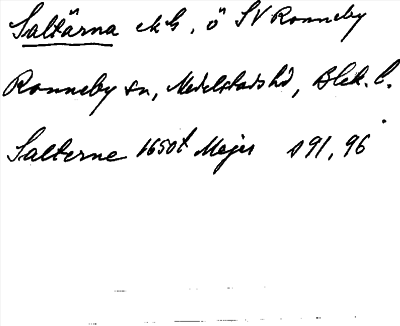 Saltärna ekG, ö SV Ronneby
Ronneby sn, Medelstads hd, Blek. l.
Salterne 1650t Mejer s 91, 96